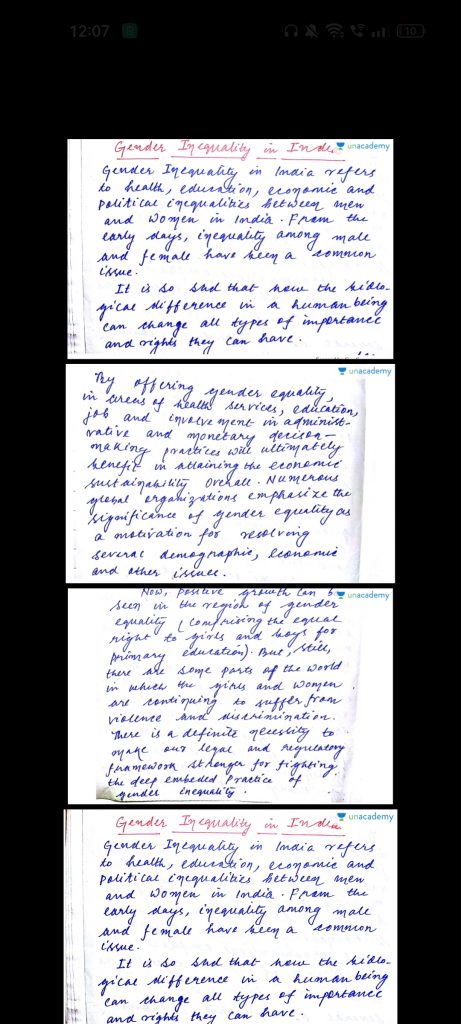 12:07
10
Gender Inequality in India
unacademy
Gender Inequality in India refers
to health, education, economic and
political inequalities between men
and women in India. From the
early days, inequality among male
and female have been a common
issue.
It is so sad that how the biolo-
gical difference in a human being
can change all types of importance
and rights they can have.
unacademy
By offering gender equality,
in areas of health services, education,
job and involvement in administ-
rative and monetary decison-
making practices will ultimately
benefit in attaining the economic
sustainability overall. Numerous
global organizations emphasize the
significance of gender equality as
a motivation for resolving
several demographic, economic
and other issues.
unacademy
Now, positive growth can b
seen in the region of gender
equality (comprising the equal
right to girls and boys for
primary education). But, still,
there are some parts of the world
in which the girls and women
are continuing to suffer from
violence and discrimination.
There is a definite necessity to
make our legal and regulatory
framework stronger for fighting
the deep embeded practice of
gender inequality.
Gender Inequality in India
unacademy
Gender Inequality in India refers
to health, education, economic and
political inequalities between men
and women in India. From the
early days, inequality among male
and female have been a common
issue.
It is so sad that how the biolo-
gical difference in a human being
can change all types of importance
and rights they can have.